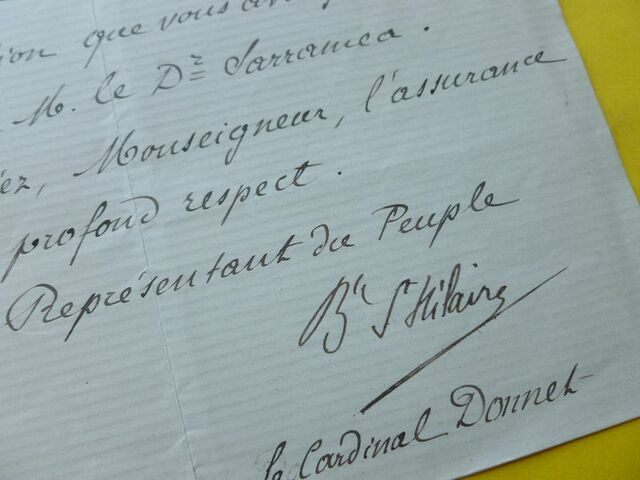 ion que vous
M. le Dr Sarramea.
ez, Monseigneur, l'assurance
profond respect.
Représentant du Peuple
Bt St Hilaire
le Cardinal Donnet